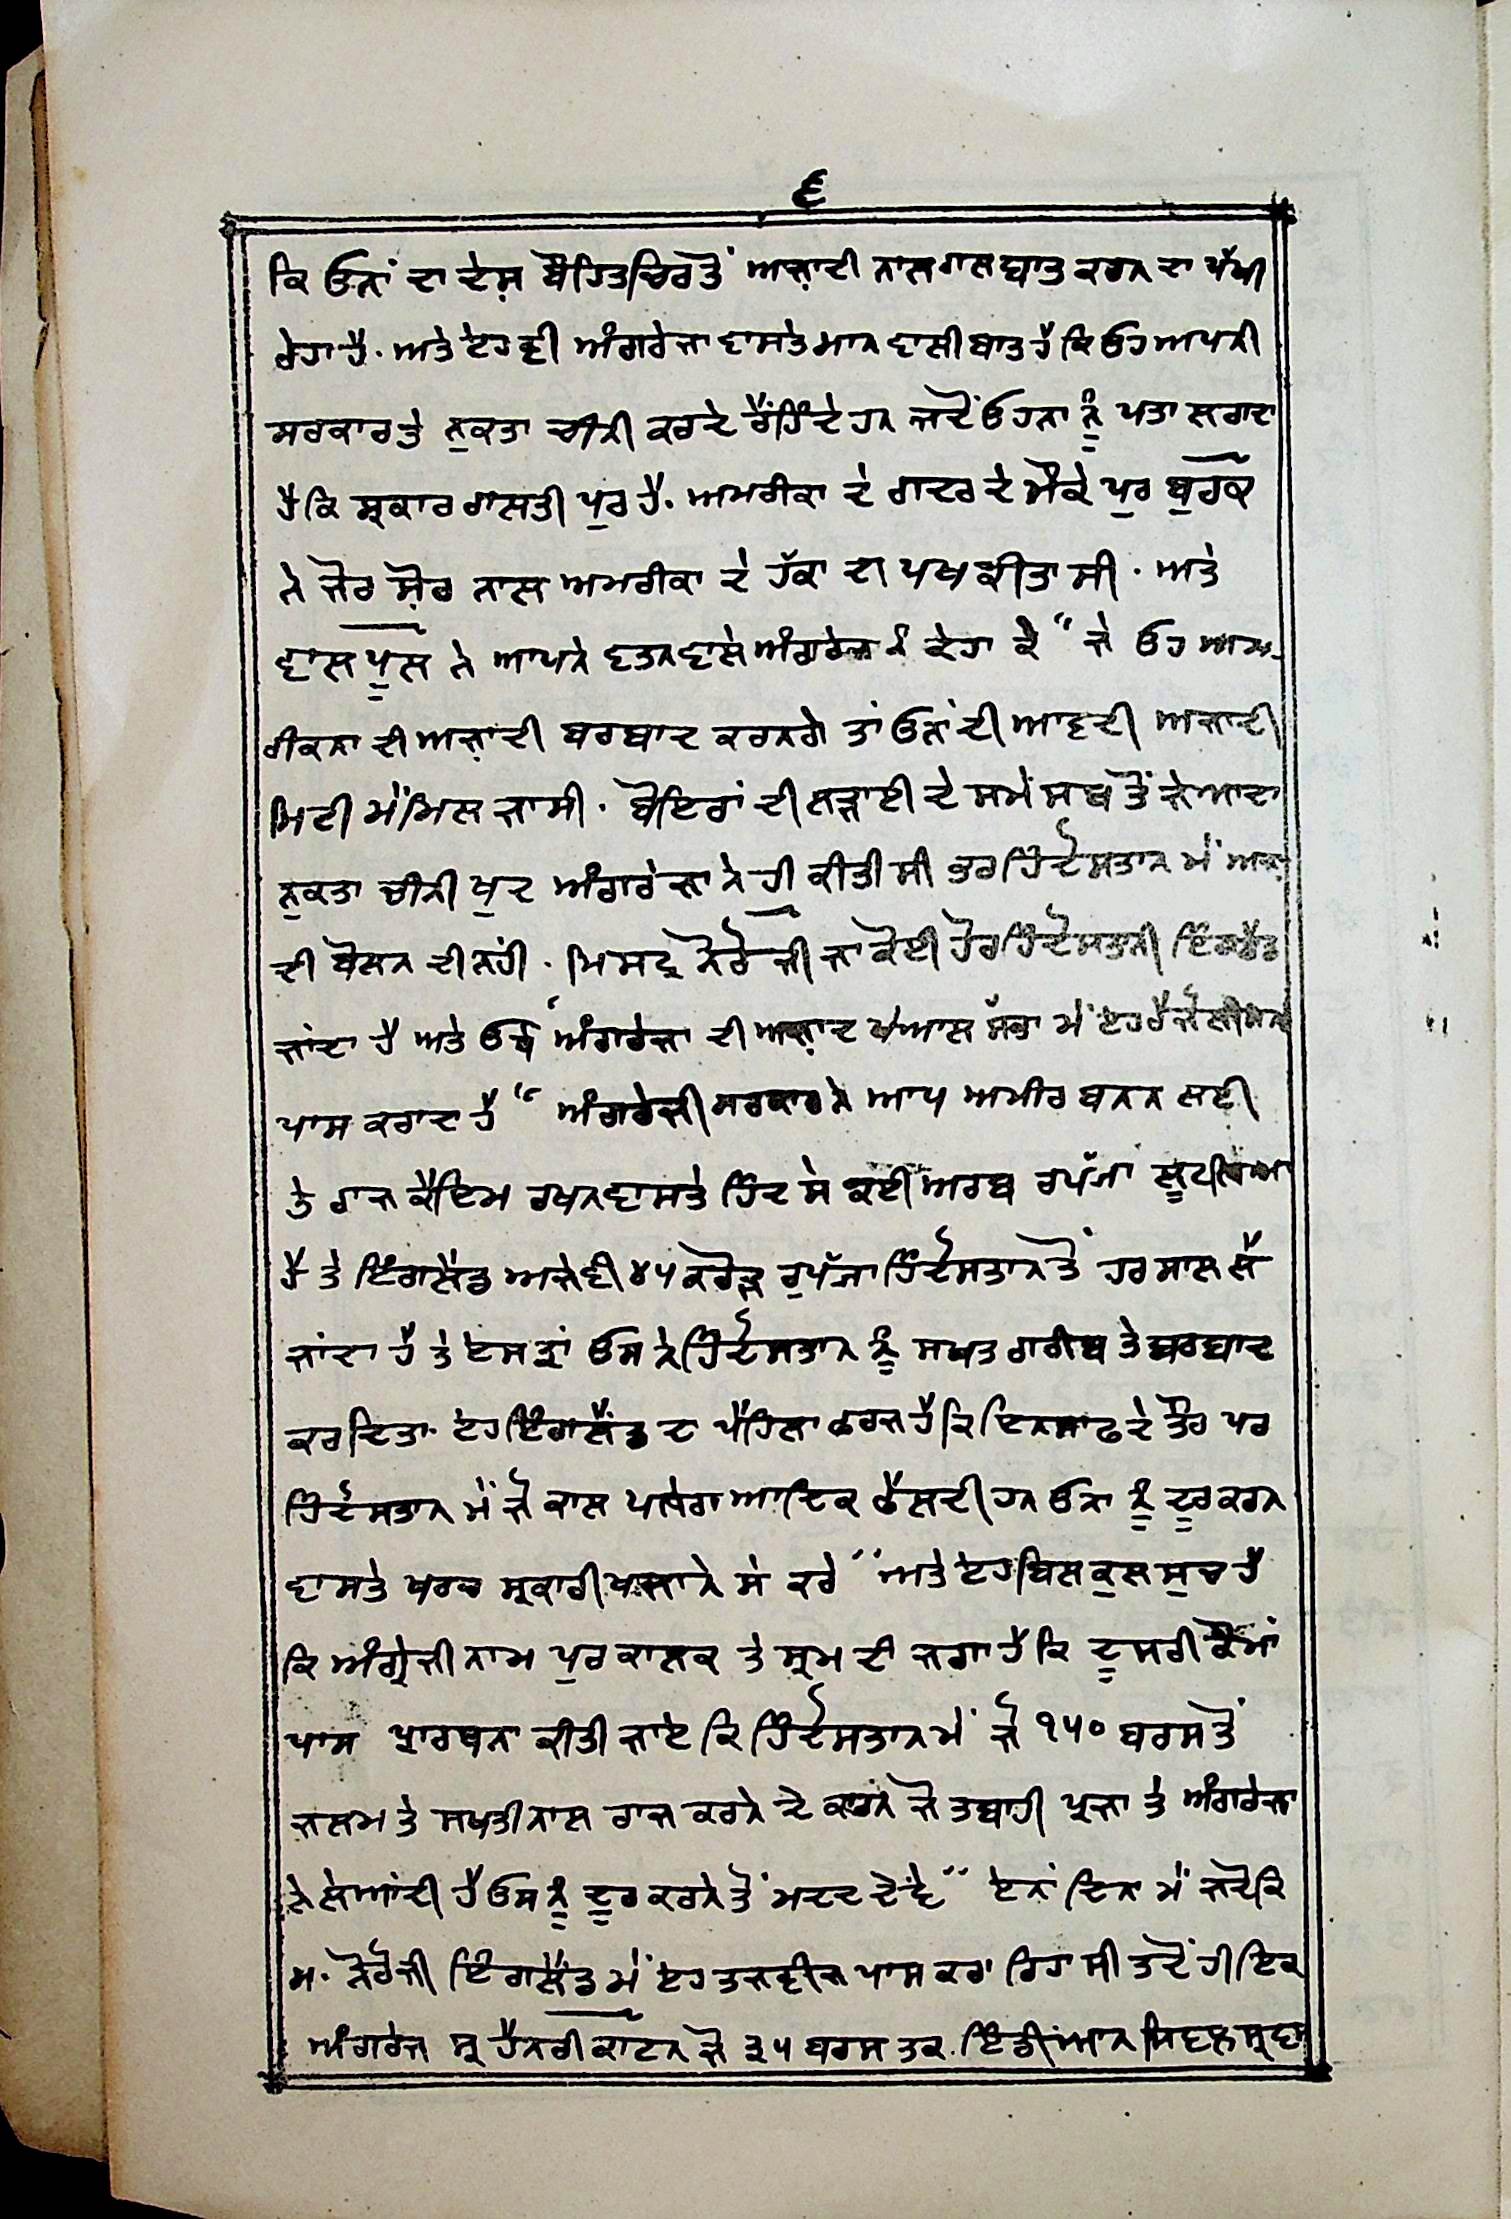 ੬
ਕਿ ਓਨਾਂ ਦਾ ਦੇਸ਼ ਬੌਹਿਤ ਚਿਰ ਤੋਂ ਅਜ਼ਾਦੀ ਨਾਲ ਗਲ ਬਾਤ ਕਰਨ ਦਾ ਪੱਖੀ
ਰੇਹਾ ਹੈ. ਅਤੇ ਏਹ ਵੀ ਅੰਗਰੇਜਾ ਵਾਸਤੇ ਮਾਨ ਵਾਲੀ ਬਾਤ ਹੈ ਕਿ ਓਹ ਆਪਨੀ
ਸਰਕਾਰ ਤੇ ਨੁਕਤਾ ਚੀਨੀ ਕਰਦੇ ਰੈਂਹਿੰਦੇ ਹਨ ਜਦੋਂ ਓਹਨਾ ਨੂੰ ਪਤਾ ਲਗਦਾ
ਹੈ ਕਿ ਸ੍ਰਕਾਰ ਗਲਤੀ ਪੁਰ ਹੈ. ਅਮਰੀਕਾ ਦੇ ਗਦਰ ਦੇ ਮੌਕੇ ਪੁਰ ਬੁਰਕ
ਨੇ ਜੋਰ ਸ਼ੋਰ ਨਾਲ ਅਮਰੀਕਾ ਦੇ ਹੱਕਾ ਦਾ ਪਖ ਕੀਤਾ ਸੀ. ਅਤੇ
ਵਾਲਪੂਲ ਨੇ ਆਪਨੇ ਵਤਨ ਵਾਲੇ ਅੰਗਰੇਜ਼ ਨੂੰ ਕੇਹਾ ਕੇ "ਜੇ ਓਹ ਅਮ-
ਰੀਕਨਾ ਦੀ ਅਜ਼ਾਦੀ ਬਰਬਾਦ ਕਰਨਗੇ ਤਾਂ ਓਨਾਂ ਦੀ ਆਵਦੀ ਅਜਾਦੀ
ਮਿਟੀ ਮੇਂ ਮਿਲ ਜਾਸੀ. ਬੋਇਰਾਂ ਦੀ ਲੜਾਈ ਦੇ ਸਮੇਂ ਸਬ ਤੋਂ ਜੇਆਦਾ
ਨੁਕਤਾ ਚੀਨੀ ਖੁਦ ਅੰਗਰੇਜਾ ਨੇ ਹੀ ਕੀਤੀ ਸੀ ਭਰ ਹਿੰਦੋਸਤਾਨ ਮੇਂ
ਦੀ ਬੋਲਨ ਦੀ ਨਹੀ. ਮਿਸਟ੍ਰ ਨੌਰੋਜੀ ਜਾ ਕੋਈ ਹੋਰ ਹਿੰਦੋਸਤਾਨੀ ਇੰਗਲੈਂਡ
ਜਾਂਦਾ ਹੈ ਅਤੇ ਓਥੇ ਅੰਗਰੇਜਾ ਦੀ ਅਜ਼ਾਦ ਖੇਆਲ ਸੱਭਾ ਮੇਂ ਏਹ
ਪਾਸ ਕਰਾਦਾ ਹੈ "ਅੰਗਰੇਜੀ ਸਰਕਾਰ ਨੇ ਆਪ ਅਮੀਰ ਬਨਨ ਲਈ
ਤੇ ਰਾਜ ਕੈਇਮ ਰਖਨ ਵਾਸਤੇ ਹਿੰਦ ਸੇ ਕਈ ਅਰਬ ਰੁਪੱਯਾ
ਹੈ ਤੇ ਇੰਗਲੈਂਡ ਅਜੇ ਵੀ ੪੫ ਕਰੋੜ ਰੁਪੱਯਾ ਹਿੰਦੋਸਤਾਨ ਤੋਂ ਹਰ ਸਾਲ ਲੈ
ਜਾਂਦਾ ਹੈ ਤੇ ਏਸਤ੍ਰਾਂ ਓਸ ਨੇ ਹਿੰਦੋਸਤਾਨ ਨੂੰ ਸਖਤ ਗਰੀਬ ਤੇ ਬਰਬਾਦ
ਕਰ ਦਿਤਾ. ਏਹ ਇੰਗਲੈਂਡ ਦਾ ਪੈਹਿਲਾ ਫਰਜ ਹੈ ਕਿ ਇਨਸਾਫ ਦੇ ਤੌਰ ਪਰ
ਹਿੰਦੋਸਤਾਨ ਮੇਂ ਜੋ ਕਾਲ ਪਲੇਗ ਆਦਿਕ ਫੈਲਦੀ ਹਨ ਓਨਾ ਨੂੰ ਦੂਰ ਕਰਨ
ਵਾਸਤੇ ਖਰਚ ਸ੍ਰਕਾਰੀ ਖਜਾਨੇ ਸੇ ਕਰੇ" ਅਤੇ ਏਹ ਬਿਲਕੁਲ ਸੁਚ ਹੈ
ਕਿ ਅੰਗ੍ਰੇਜੀ ਨਾਮ ਪੁਰ ਕਾਲਕ ਤੇ ਸ਼ਰਮ ਦੀ ਜਗਾ ਹੈ ਕਿ ਦੂਸਰੀ ਕੌਮਾਂ
ਪਾਸ ਪ੍ਰਾਰਥਨਾ ਕੀਤੀ ਜਾਏ ਕਿ ਹਿੰਦੋਸਤਾਨ ਮੇਂ ਜੋ ੧੫੦ ਬਰਸ ਤੋਂ
ਜਲਮ ਤੇ ਸਖਤੀ ਨਾਲ ਰਾਜ ਕਰਨੇ ਦੇ ਕਾਰਨ ਜੋ ਤਬਾਹੀ ਪ੍ਰਜਾ ਤੇ ਅੰਗਰੇਜਾ
ਨੇ ਲੇਆਂਦੀ ਹੈ ਓਸ ਨੂੰ ਦੂਰ ਕਰਨੇ ਤੋਂ ਮਦਦ ਦੇਂਵੇ" ਏਨਾਂ ਦਿਨਾ ਮੇਂ ਜਦੋਕਿ
ਮ. ਨੌਰੋਜੀ ਇੰਗਲੈਂਡ ਮੇਂ ਏਹ ਤਜਵੀਜ ਪਾਸ ਕਰਾ ਰਿਹਾ ਸੀ ਤਦੋਂ ਹੀ ਇਕ
ਅੰਗਰੇਜ ਸ੍ਰ ਹੈਨਰੀ ਕਾਟਨ ਜੋ ੩੫ ਬਰਸ ਤਕ ਇੰਡੀਆਨ ਸਿਵਲ ਸ੍ਰਵਸ